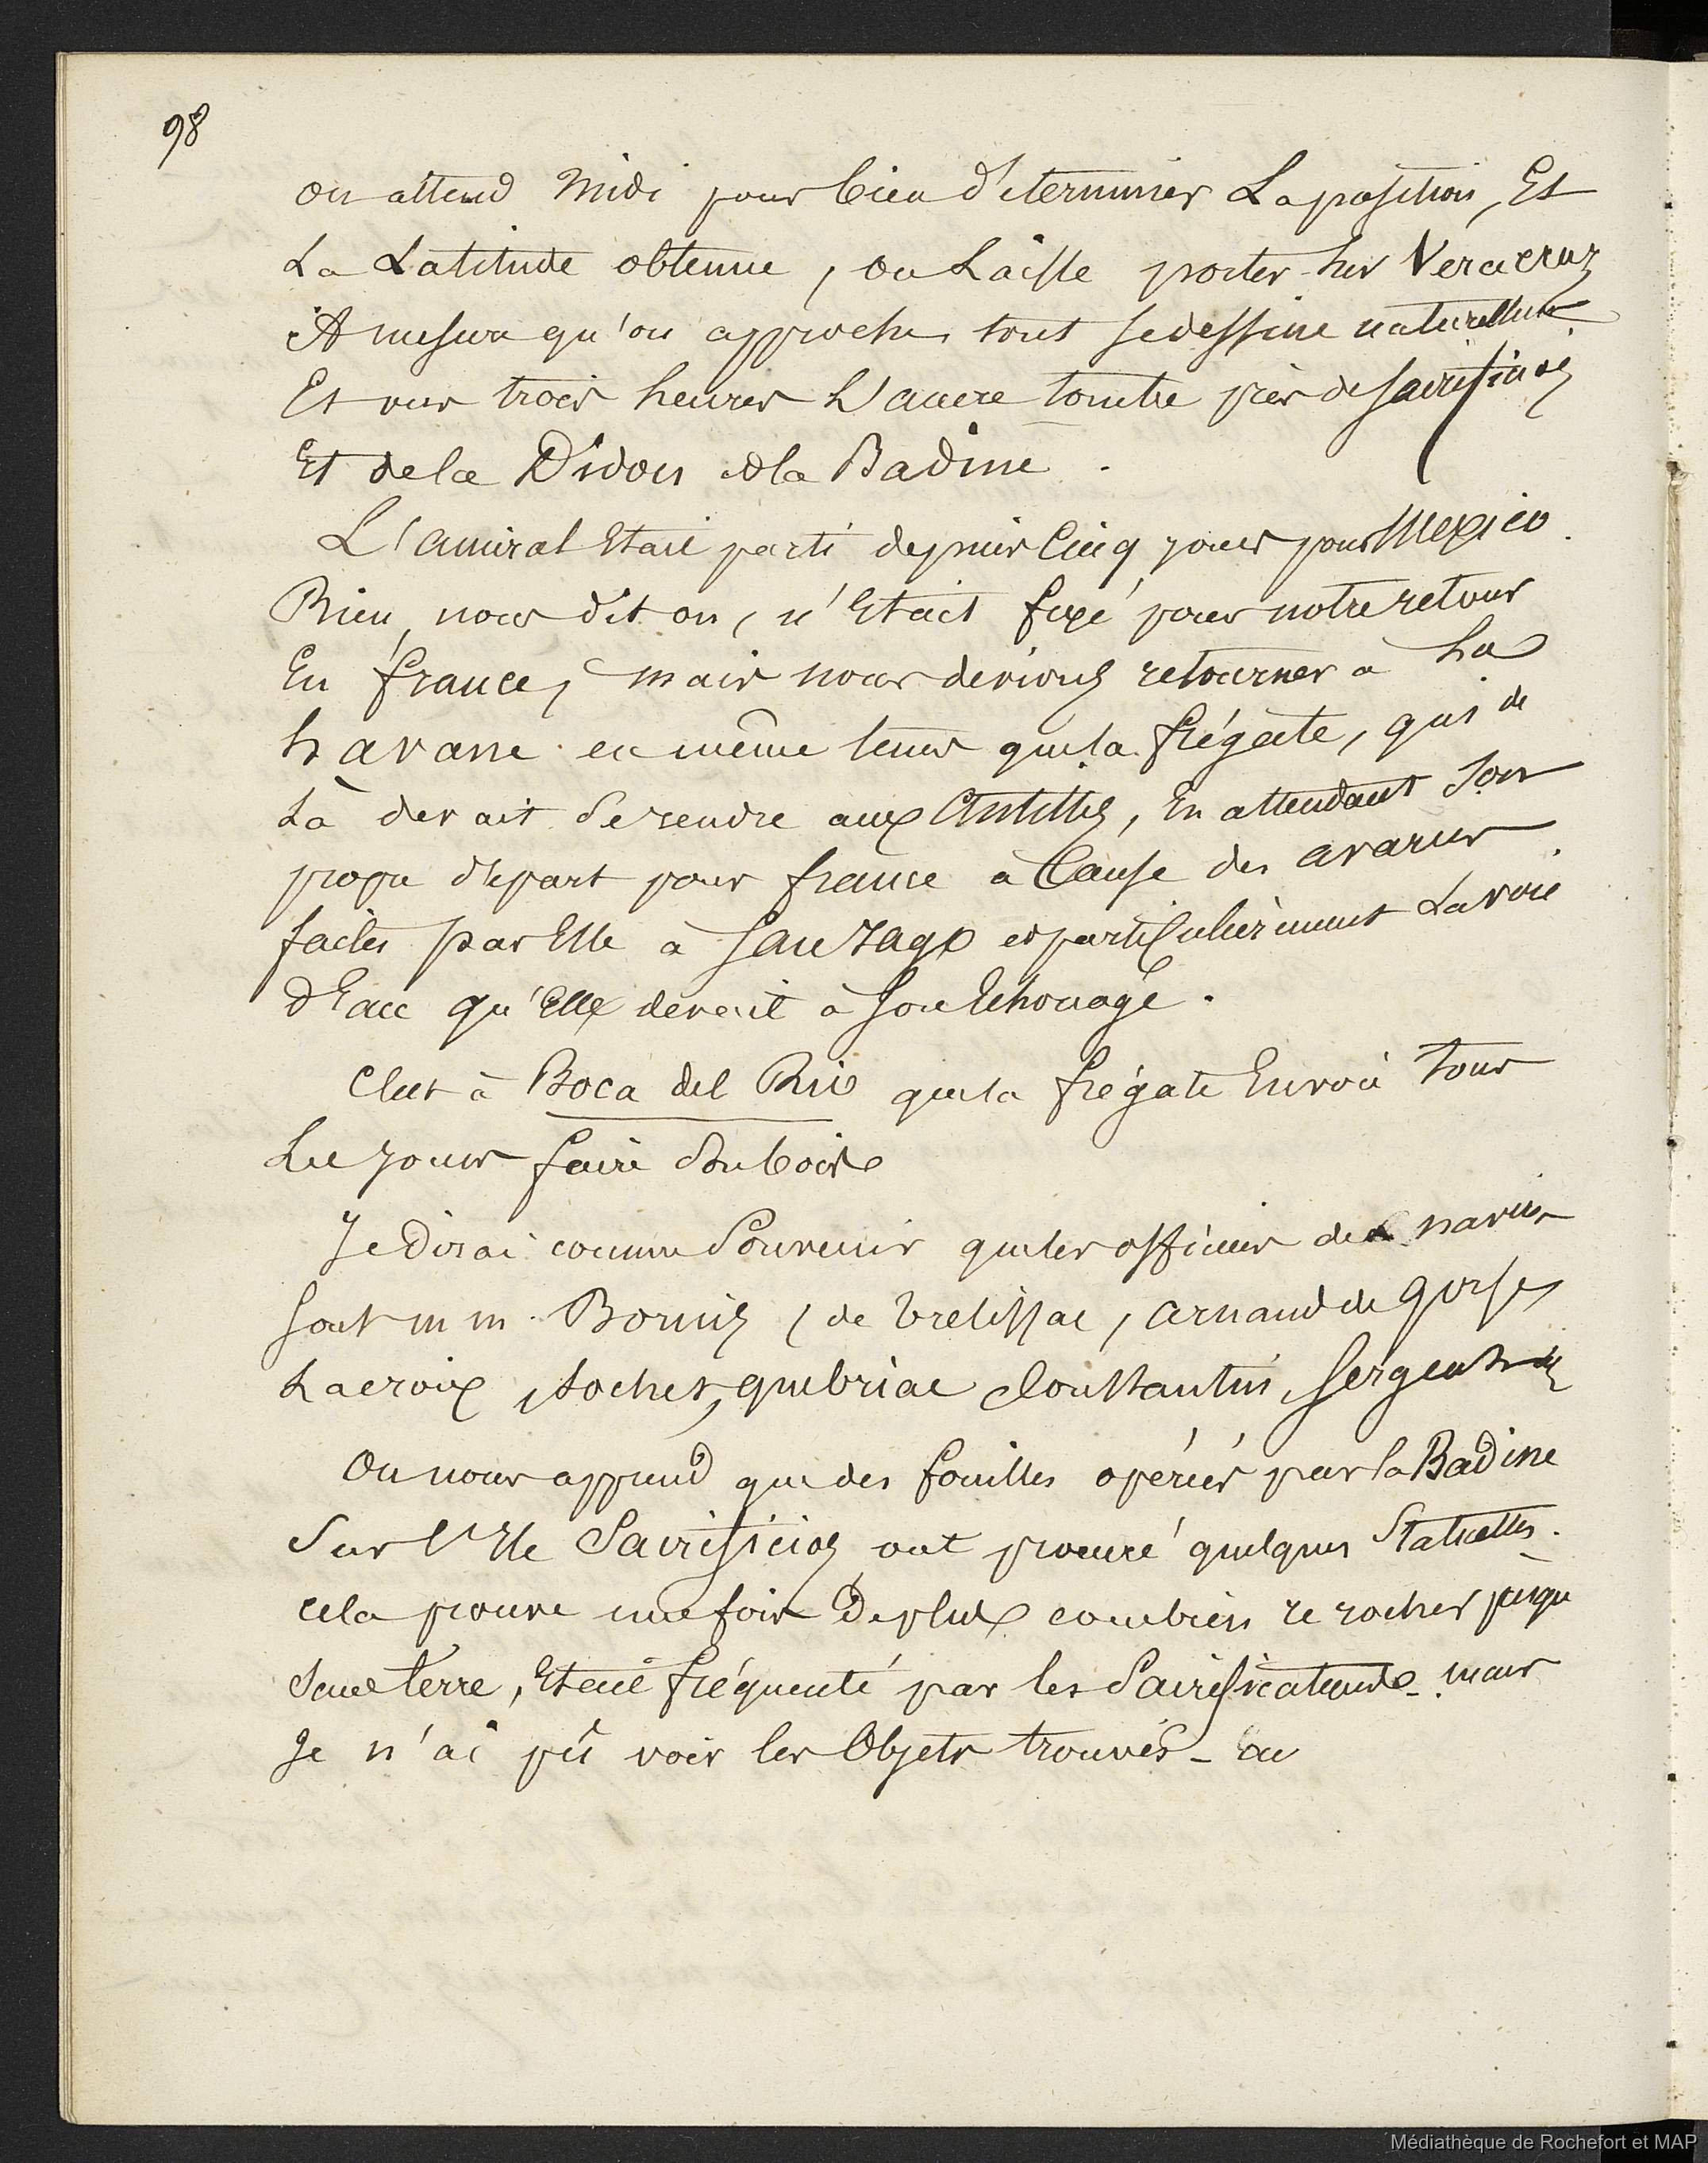 98
on attend Midi pour bien d'éterminer La position, Et
La Latitude obtenue, on Laisse porter sur Veracruz
A mesure qu'on approche, tout se dessine naturellmt.
Et vers trois heures L'ancre tombe près de Sacrificios
Et de la Didon & la Badine.
L'amiral Etait parti depuis Cinq jours pour Mexico.
Rien, nous dit on, n'Etait fixé pour notre retour
En france, mais nous devions retourner à La
havane en même tems que la frégate, qui de
Là devait Se rendre aux Antilles, En attendant Son
propre départ pour france à Cause des avaries
faites par Elle à et particulièrement La voie
d'Eau qu'Elle devait à Son Echouage.
C'est à Boca del Rio que la frégate Envoie tous
Les jours faire du bois
Je Dirai comme Souvenir que les officiers de navire
sont m m. Bornis, de Trelissac, arnaud de gorse,
Lacroix, quebriac Constantin, Sergent
On nous apprend que des fouilles opérées par la Badine
Sur l'Ile Sacrificios ont procuré quelques Statuettes.
cela prouve une fois De plus combien ce rocher presque
Sans terre, Etait fréquenté par les Sacrificateurs - mais
Je n'ai pû voir les Objets trouvés - on
Médiathèque de Rochefort et MAP